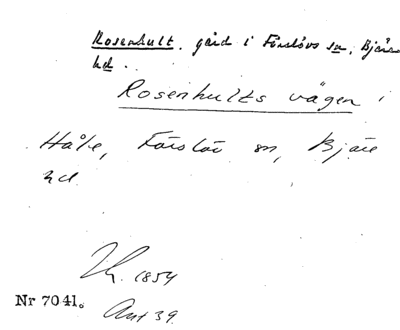 Rosenhult. gård i Förslövs sn, Bjäre
hd..
Rosenhults vägen i
Håle, Förslöv sn, Bjäre
hd
1854
Nr 7041.
Ant 39.